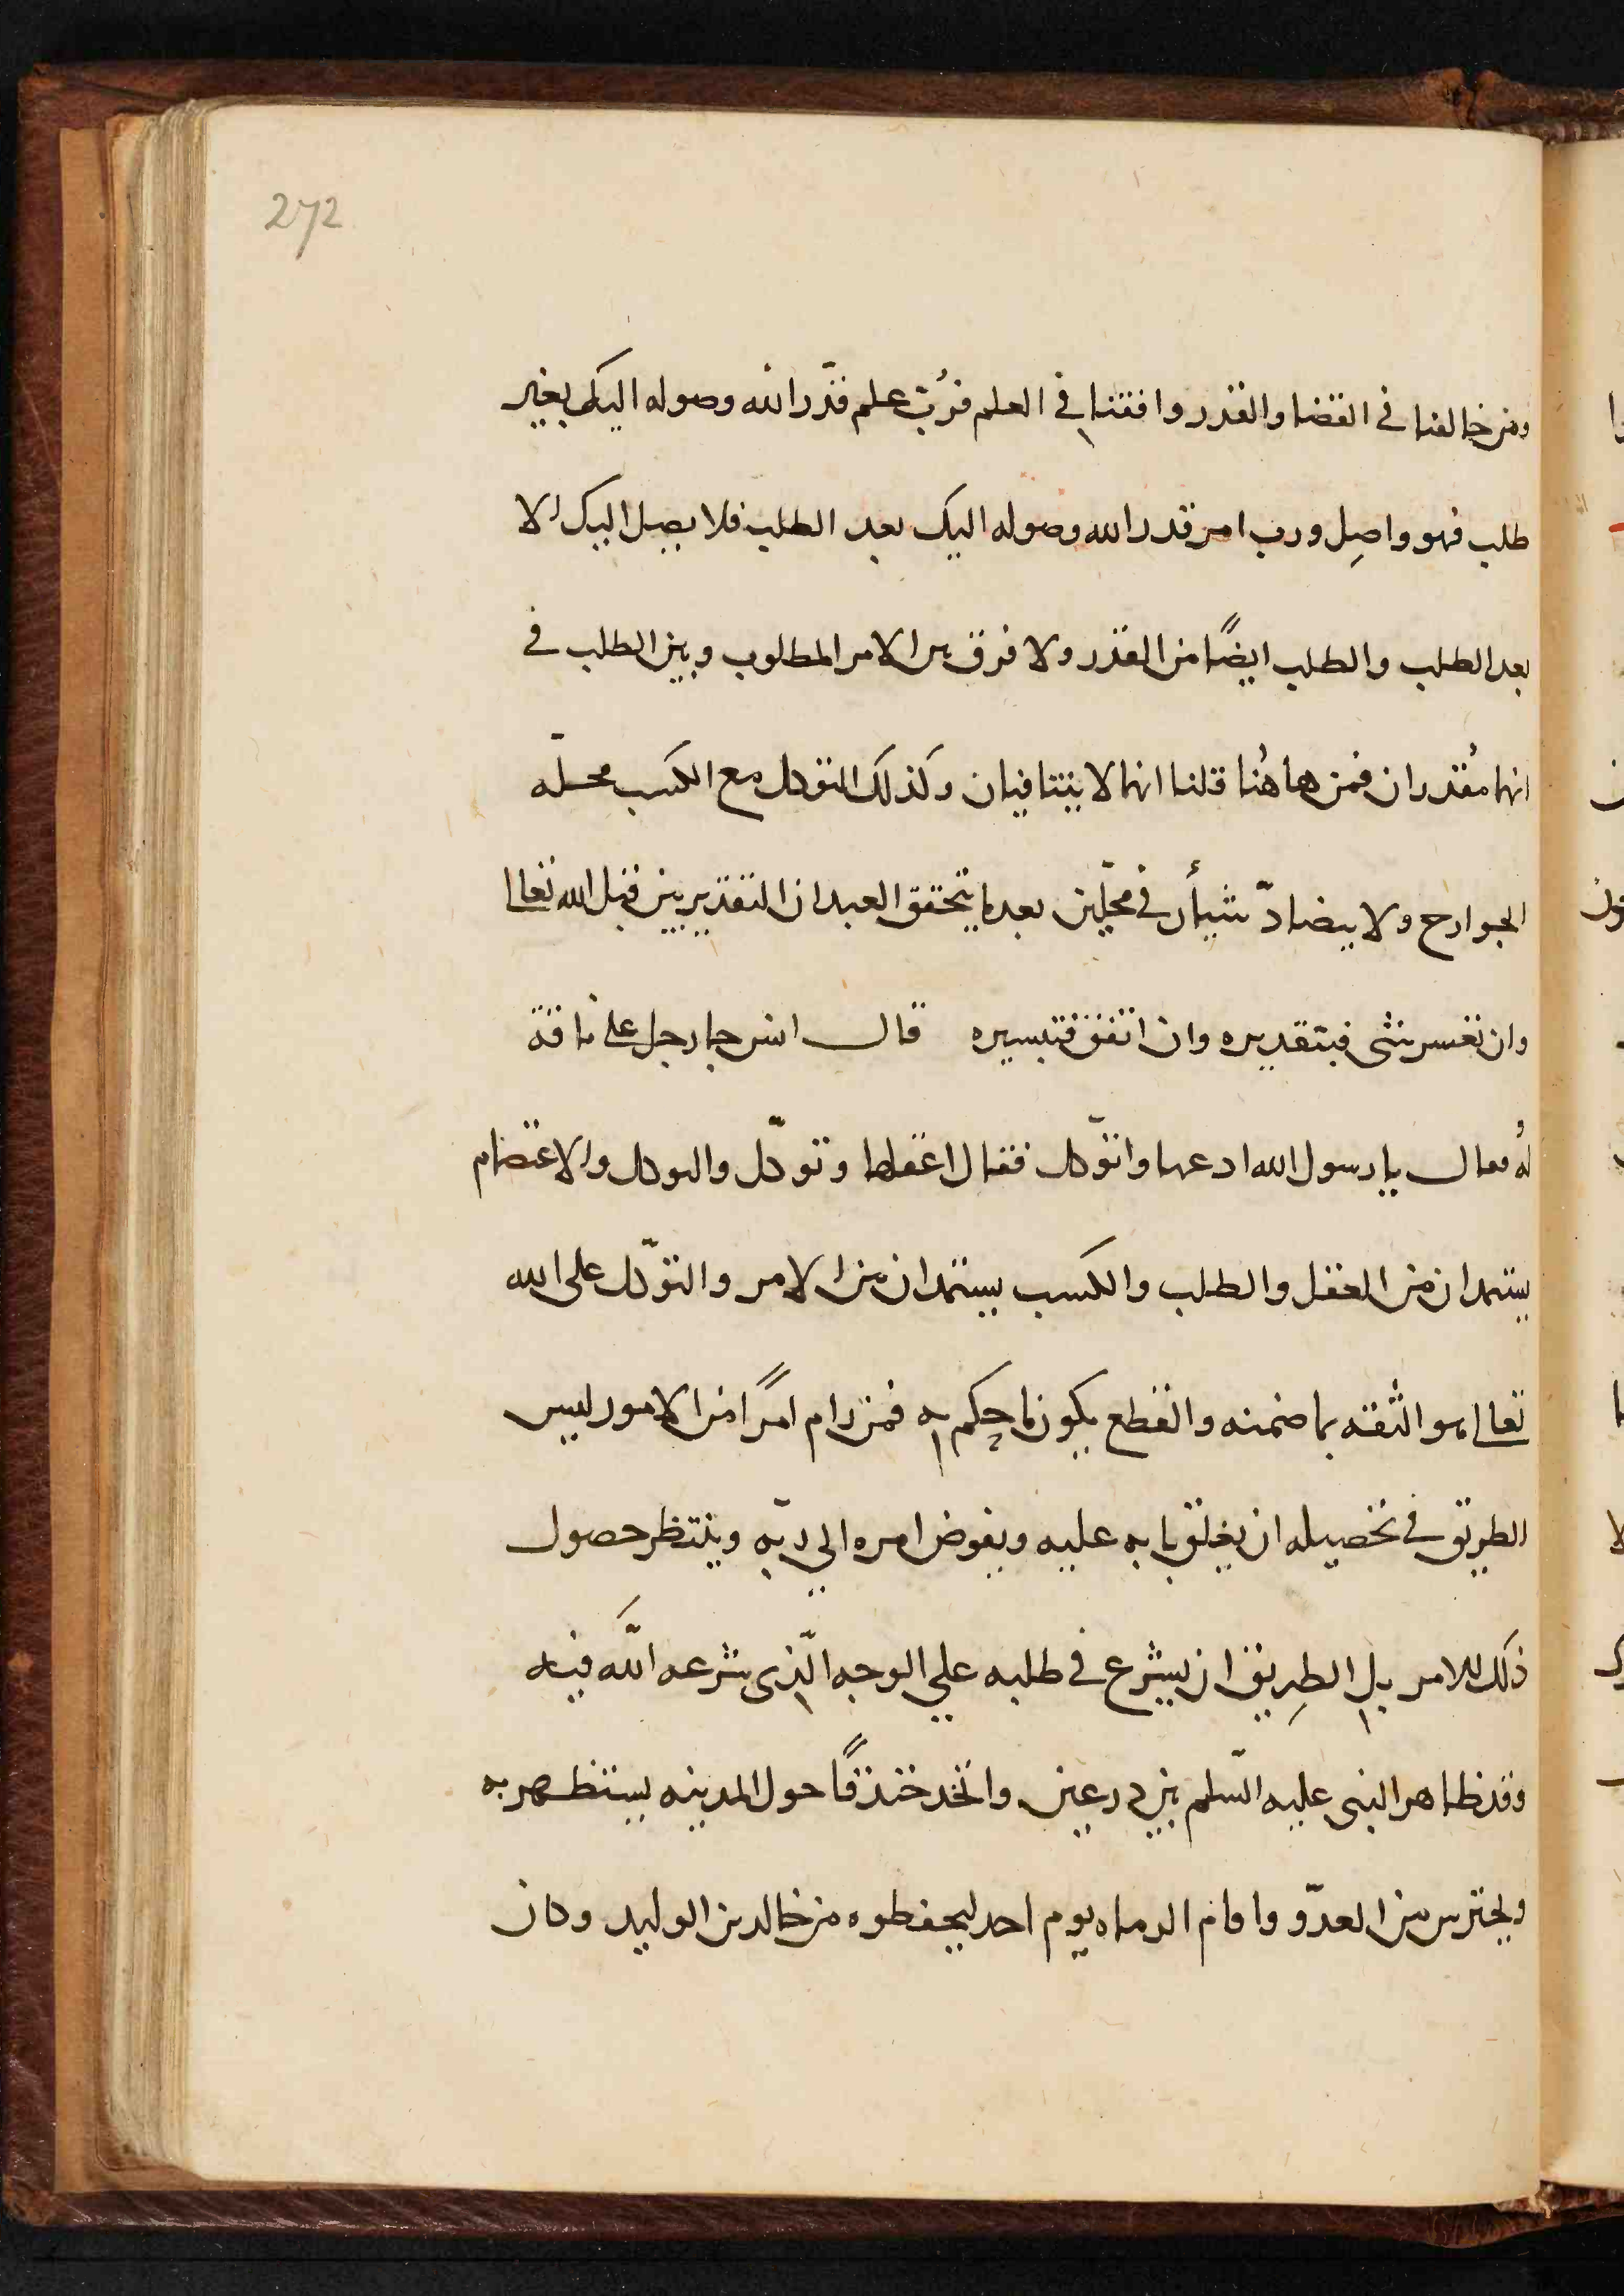 272
ومن خالفنا في القضا والقدر وافقنا في العلم فرُبّ علم قدّر الله وصوله اليك بغير
طلب فهو واصِل ورب امر قدر الله وصوله اليك بعد الطلب فلا يصل اليك الا
بعد الطلب والطلب ايضًا من القدر ولا فرق بين الامر المطلوب وبين الطلب في
انهما مُقدران فمن هاهُنا قلنا انهما لا يتنافيان وكذلك التوكل مع الكسب محلّه
الجوارح ولا يضادّ شيأن في محلّين بعد ما يتحقق العبد ان التقدير من قبل الله تعالى
وان تعسر شى فبتقديره وان اتفق فتيسيره قال انس جا رجل على ناقة
لهُ فقال يا رسول الله ادعها واتوّكل فقال اعقلها وتوكّل والتوكل والاعتصام
يستمدان من العقل والطلب والكسب يستمدان من الامر والتوّكل على الله
تعالى هو الثقه بما ضمنه والقطع بكون ما حكم به فمن رام امرًا من الامور ليس
الطريق في تحصيله ان يغلق بابه عليه ويفوض امره الي ربّه وينتظر حصول
ذلك الامر بل الطِريق ان يشرع في طلبه علي الوجه الّذى شرعه اللّه فيه
وقد ظاهر النبى عليه السّلم بين درعين واتخد خندقًا حول المدينه يستظهر به
ويحترس من العدّو واقام الرماه يوم احد ليحفظوه من خالد بن الوليد وكان